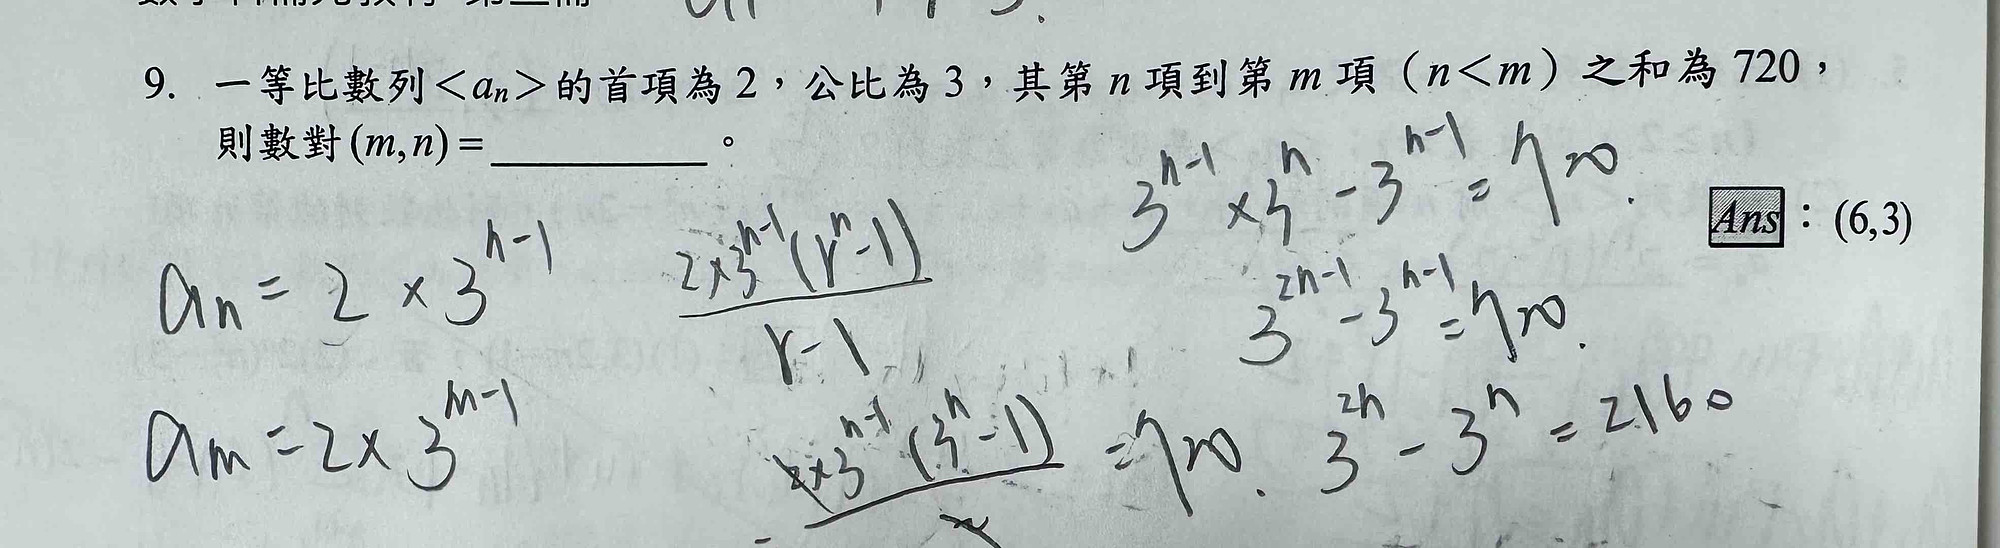 9. 一等比數列<aₙ>的首項為 2，公比為 3，其第 n 項到第 m 項（n<m）之和為 720，
則數對(m,n)=__________。
Ans：(6,3)
aₙ = 2 × 3^(n-1)
aₘ = 2 × 3^(m-1)
2×3^(n-1)(r^n-1)
r-1
2×3^(n-1)(3^n-1) = 720.
2
3^(n-1) × 3^n - 3^(n-1) = 720.
3^(2n-1) - 3^(n-1) = 720.
3^(2n) - 3^n = 2160